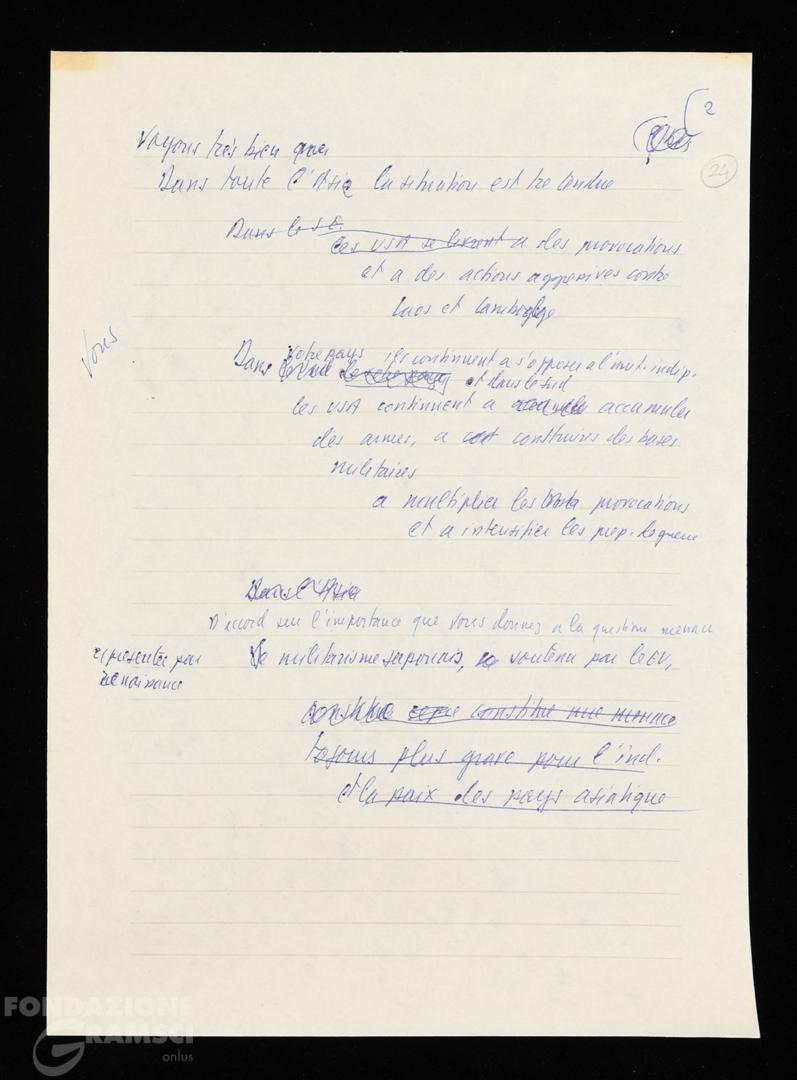 2
24
Voyons très bien que
Dans toute l'Asie la situation est tre tendue
Dans le S.E.
les USA se livrent a des provocations
et a des actions aggresives contre
Laos et Cambogge
Vous
Dans votre pays ils continuent a s'opposer a l'mut. indip.
et dans le sud
les USA continuent a accumuler
des armes, a construires des bases
militaires
a multiplier les provocations
et a intensifier les prep. de guerre
Dans l'Asie
D'accord sur l'importance que vous donnez a la question menace
representée par
renaissance
le militarisme japonais, soutenu par les EU,
constitue une menace
tojours plus grave pour l'ind.
et la paix des pays asiatique
FONDAZIONE
GRAMSCI
onlus